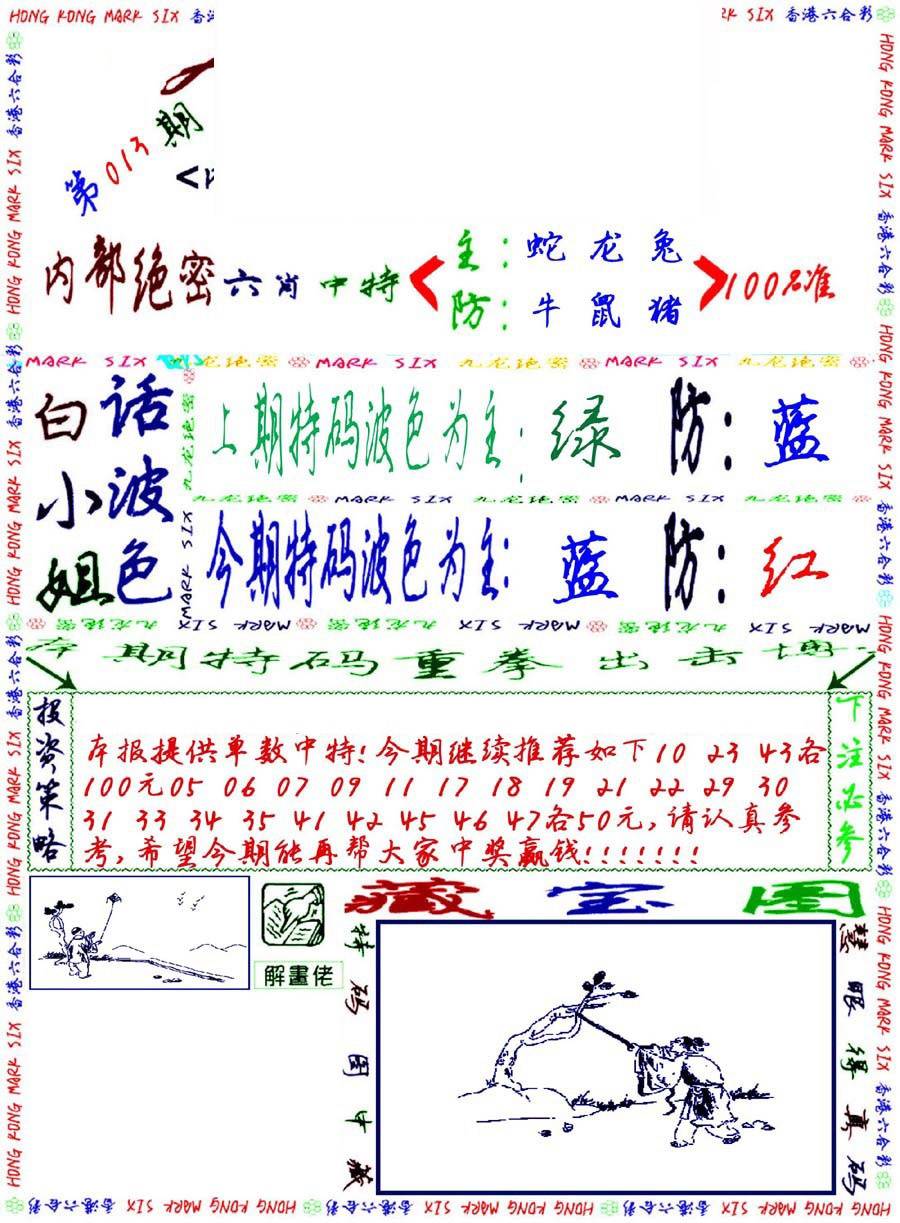 HONG KONG MARK SIX 香港六合彩
第013期
内部绝密六肖中特
主：蛇 龙 兔
防：牛 鼠 猪
100%准
MARK SIX 九龙绝密 MARK SIX 九龙绝密 MARK SIX 九龙绝密
白话
小波
姐色
上期特码波色为主：绿 防：蓝
九龙绝密 MARK SIX 九龙绝密 MARK SIX 九龙绝密
今期特码波色为主：蓝 防：红
本期特码重拳出击
投资策略
本报提供单数中特!今期继续推荐如下10 23 43各
100元05 06 07 09 11 17 18 19 21 22 29 30
31 33 34 35 41 42 45 46 47各50元,请认真参
考,希望今期能再帮大家中奖赢钱!!!!!!!
下注必参
藏宝图
解畫佬
特码图中藏
慧眼得真码